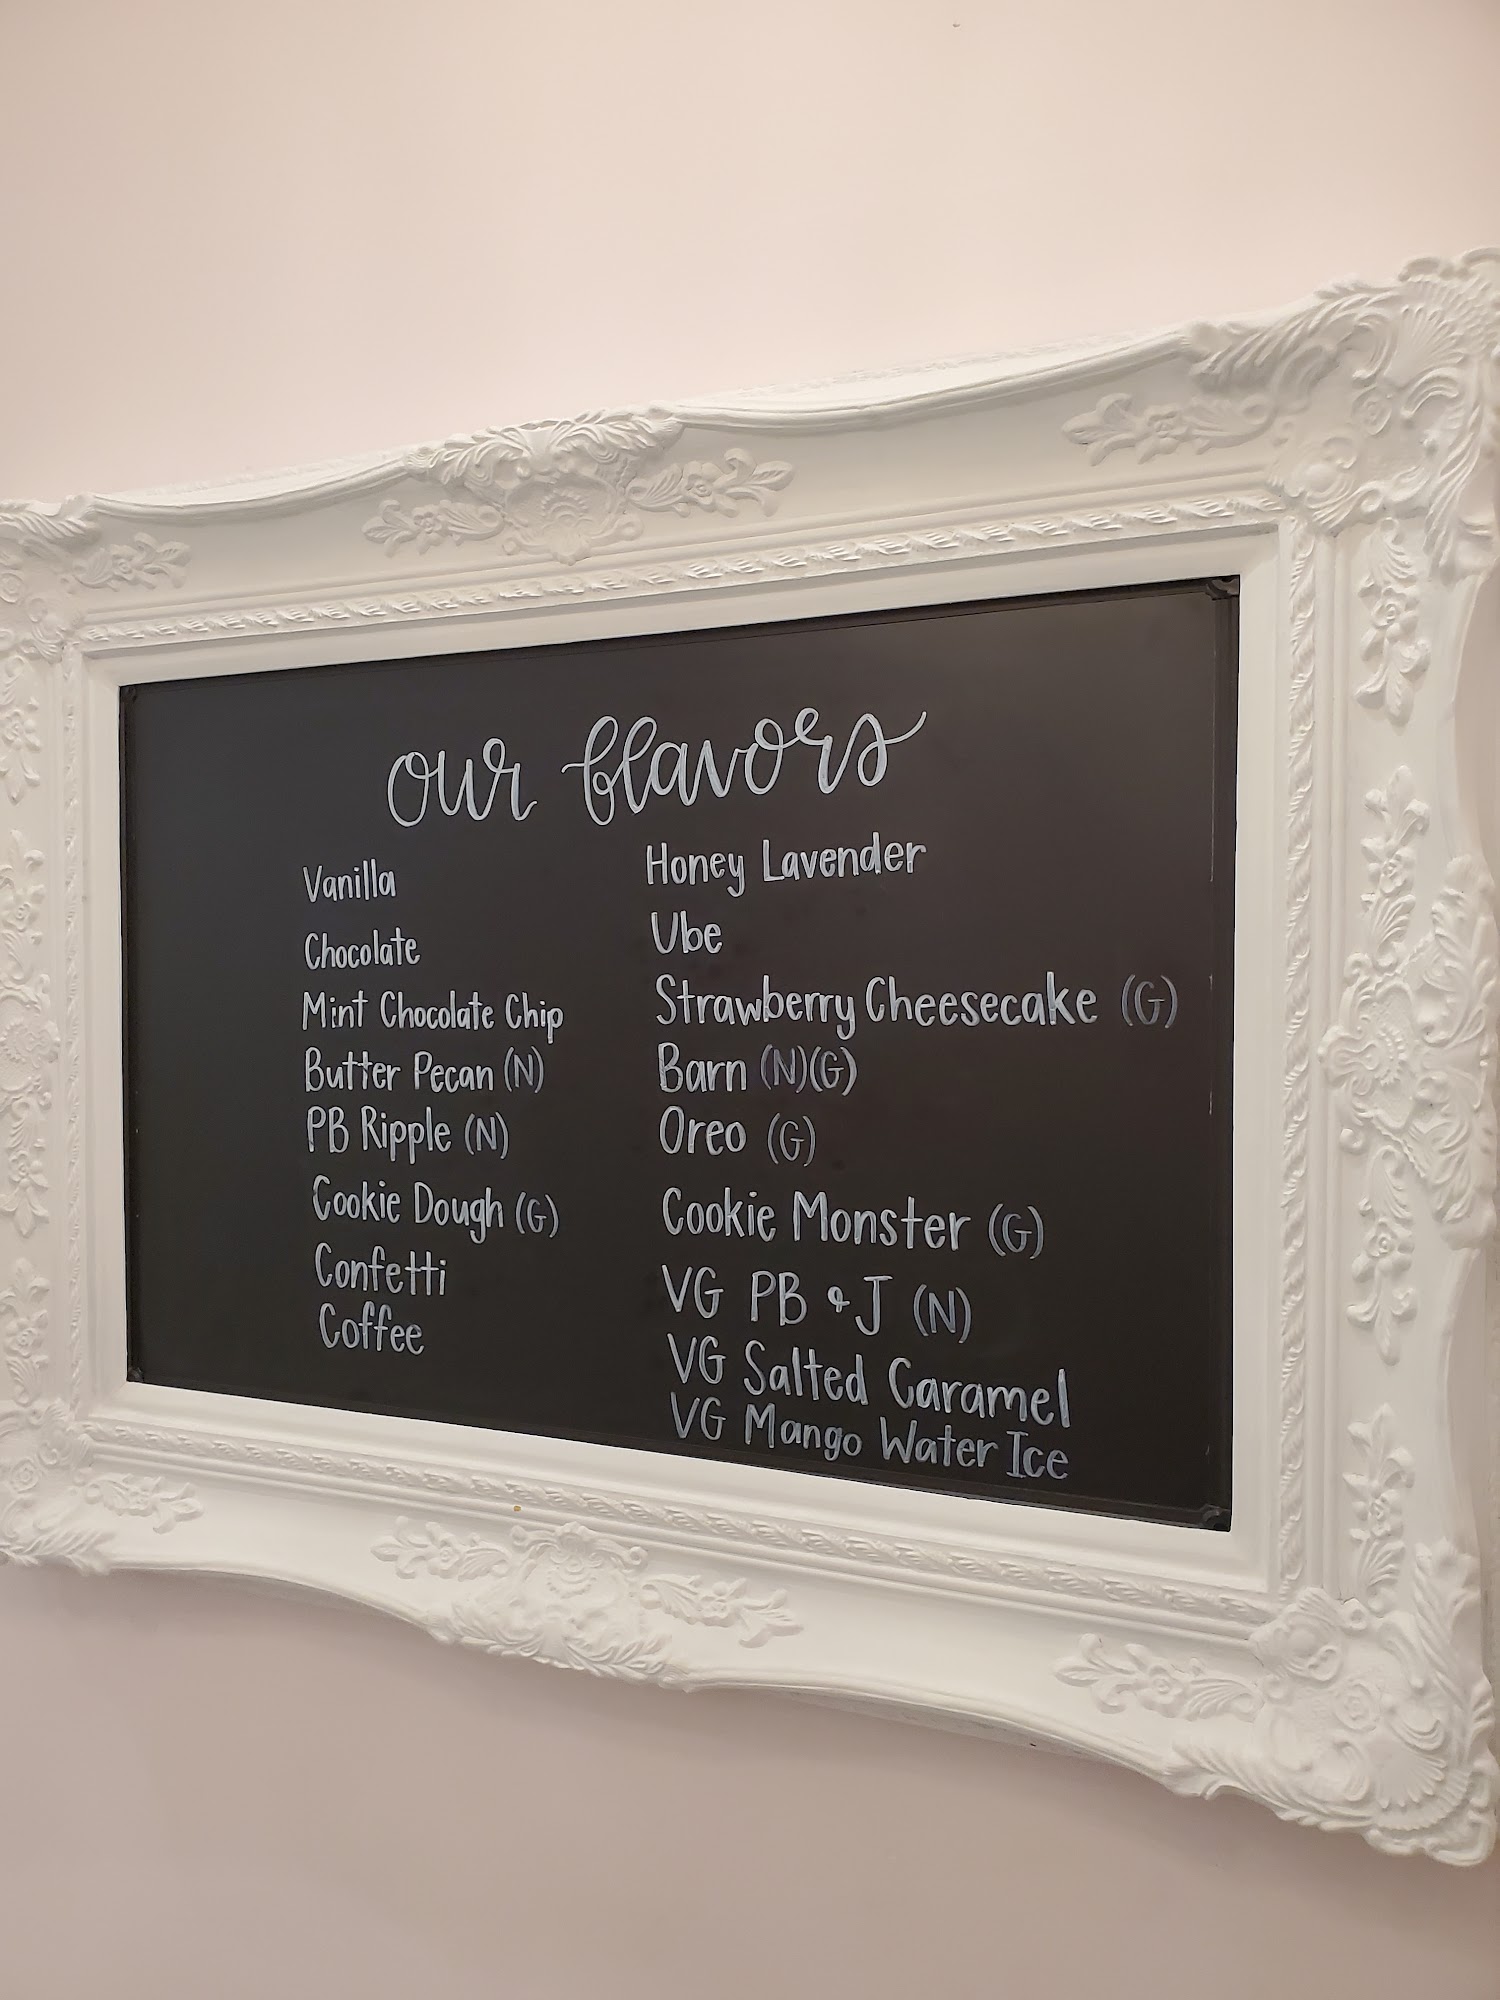 our flavors
Vanilla
Chocolate
Mint Chocolate Chip
Butter Pecan (N)
PB Ripple (N)
Cookie Dough (G)
Confetti
Coffee
Honey Lavender
Ube
Strawberry Cheesecake (G)
Barn (N)(G)
Oreo (G)
Cookie Monster (G)
VG PB & J (N)
VG Salted Caramel
VG Mango Water Ice